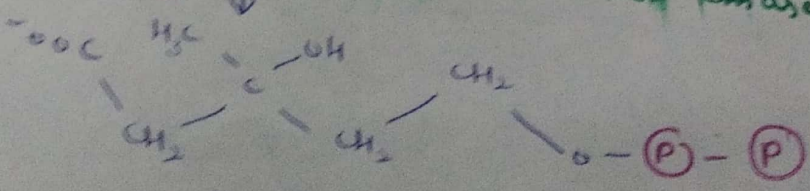 ⁻OOC H₃C OH
C CH₂
CH₂ CH₂ O - P - P